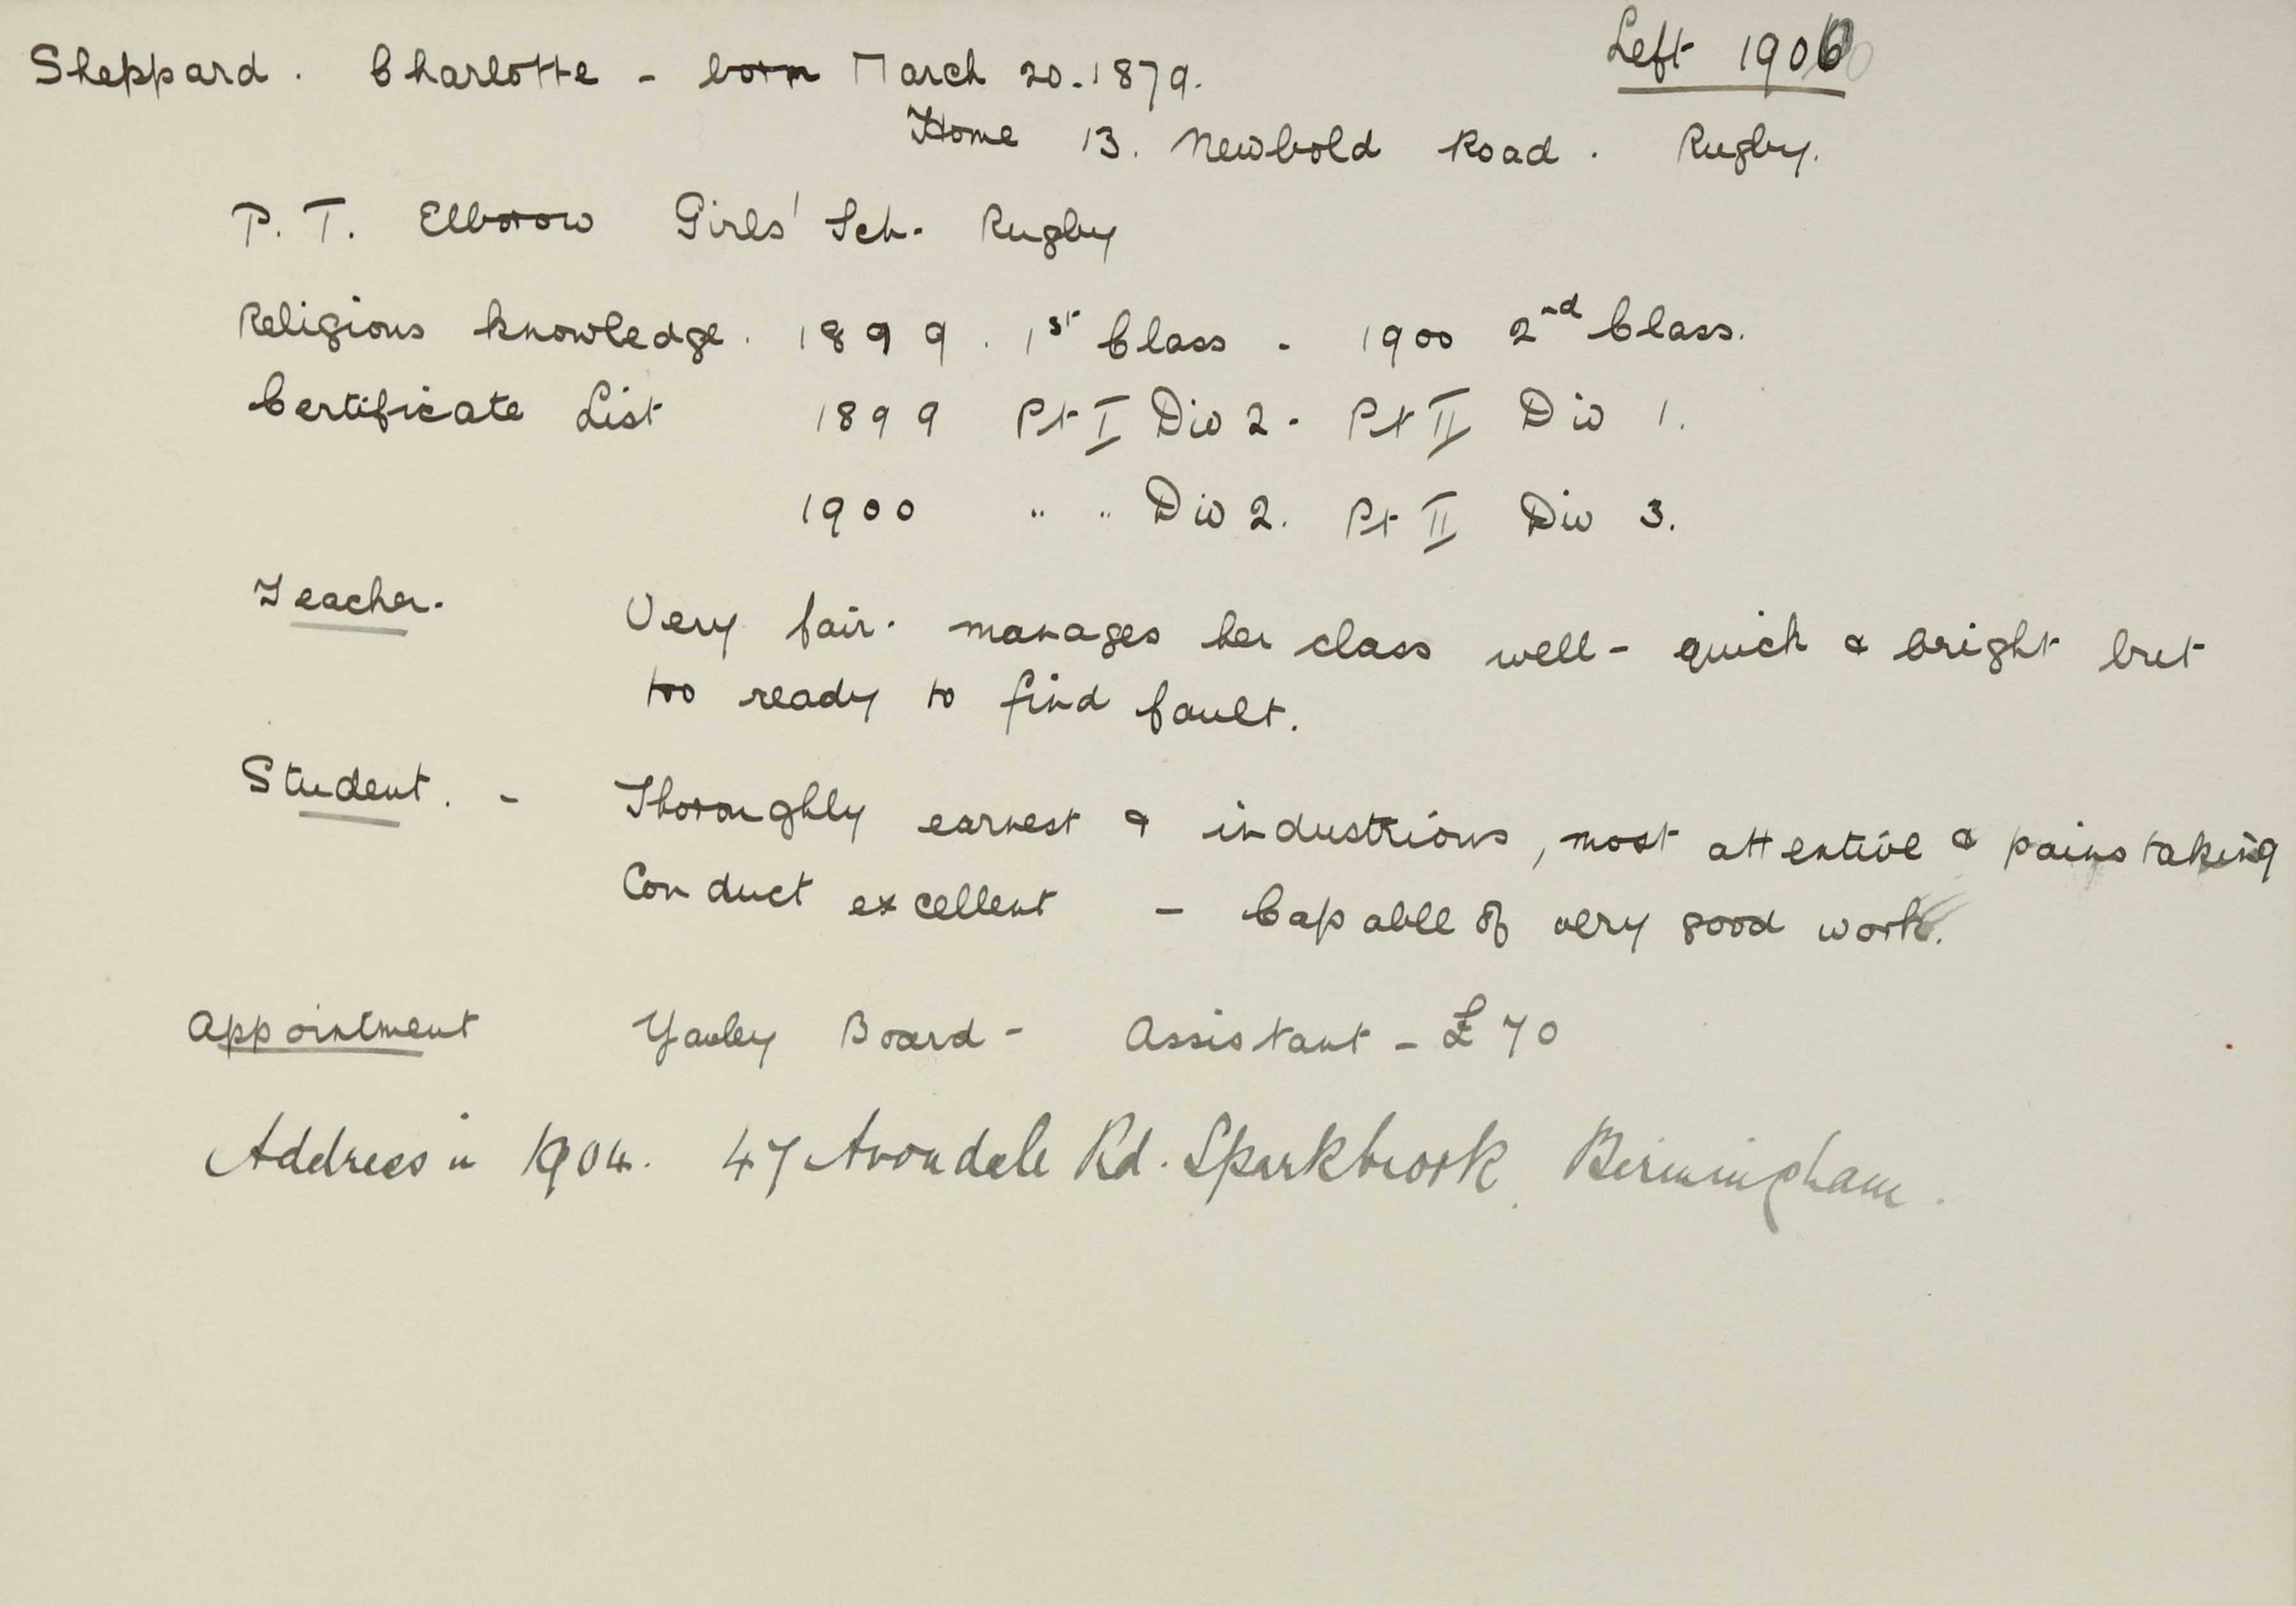 Sheppard. Charlotte - born March 20. 1879.
Left 1900
Home 13. Newbold Road. Rugby.
P. T. Elborow Girls' Sch. Rugby
Religious knowledge. 1899. 1st Class - 1900 2nd Class.
Certificate List 1899 Pt I Div 2. Pt II Div 1.
1900 " " Div 2. Pt II Div 3.
Teacher. Very fair. manages her class well - quick & bright but
too ready to find fault.
Student. - Thoroughly earnest & industrious, most attentive & painstaking
Conduct excellent - Capable of very good work.
Appointment Yardley Board - Assistant - £70
Address in 1904. 47 Avondale Rd. Sparkbrook. Birmingham.